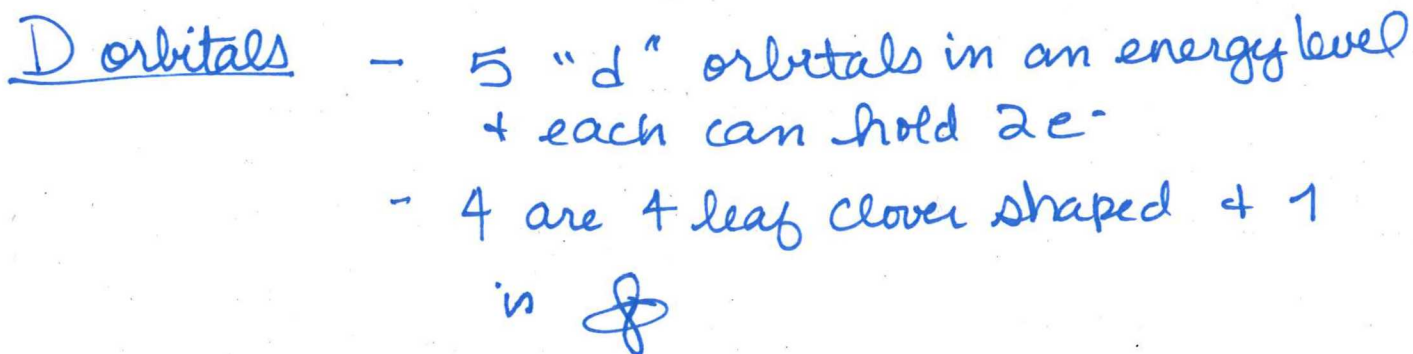 D orbitals - 5 "d" orbitals in an energy level
+ each can hold 2e-
- 4 are 4 leaf clover shaped + 1
is